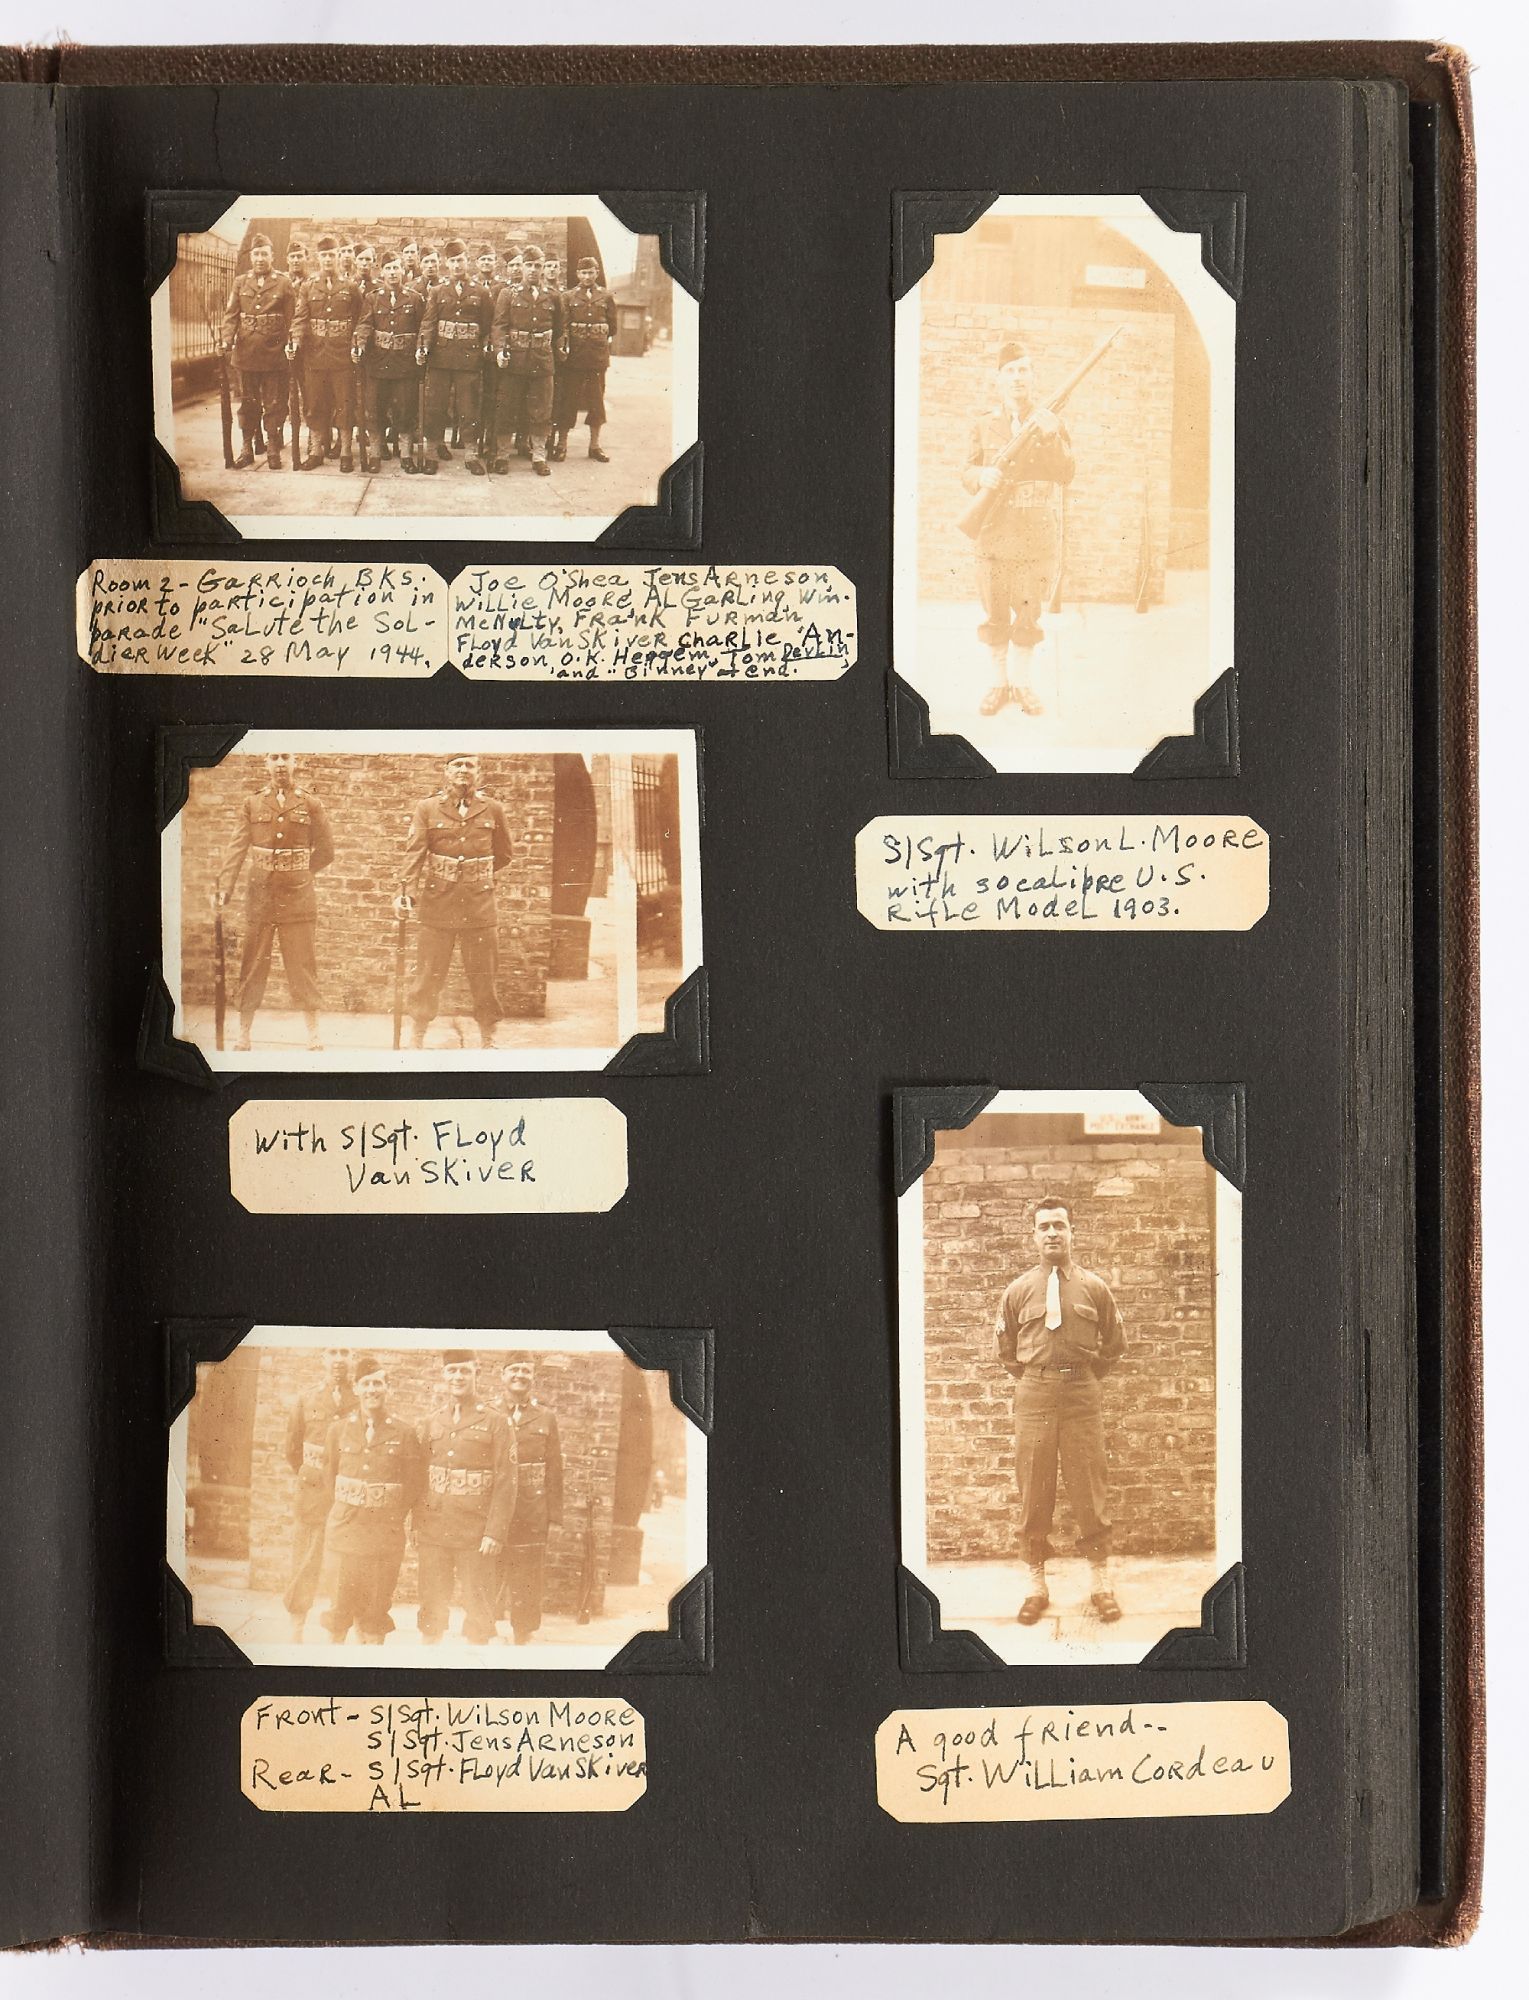 Room 2 - Garrioch BKs.
prior to participation in
parade "Salute the Sol-
dier Week" 28 May 1944.
Joe O'Shea, Jens Arneson,
Willie Moore, AL Garling, Wm.
McNulty, Frank Furman,
Floyd VanSkiver, Charlie An-
derson, O.K. Tom Devlin,
and "Binney" at end.
With S/Sgt. Floyd
VanSkiver
Front - S/Sgt. Wilson Moore
S/Sgt. Jens Arneson
Rear - S/Sgt. Floyd VanSkiver
AL
S/Sgt. Wilson L. Moore
with 30 calibre U.S.
Rifle Model 1903.
U.S. ARMY
POST ENTRANCE
A good friend--
Sgt. William Cordeau